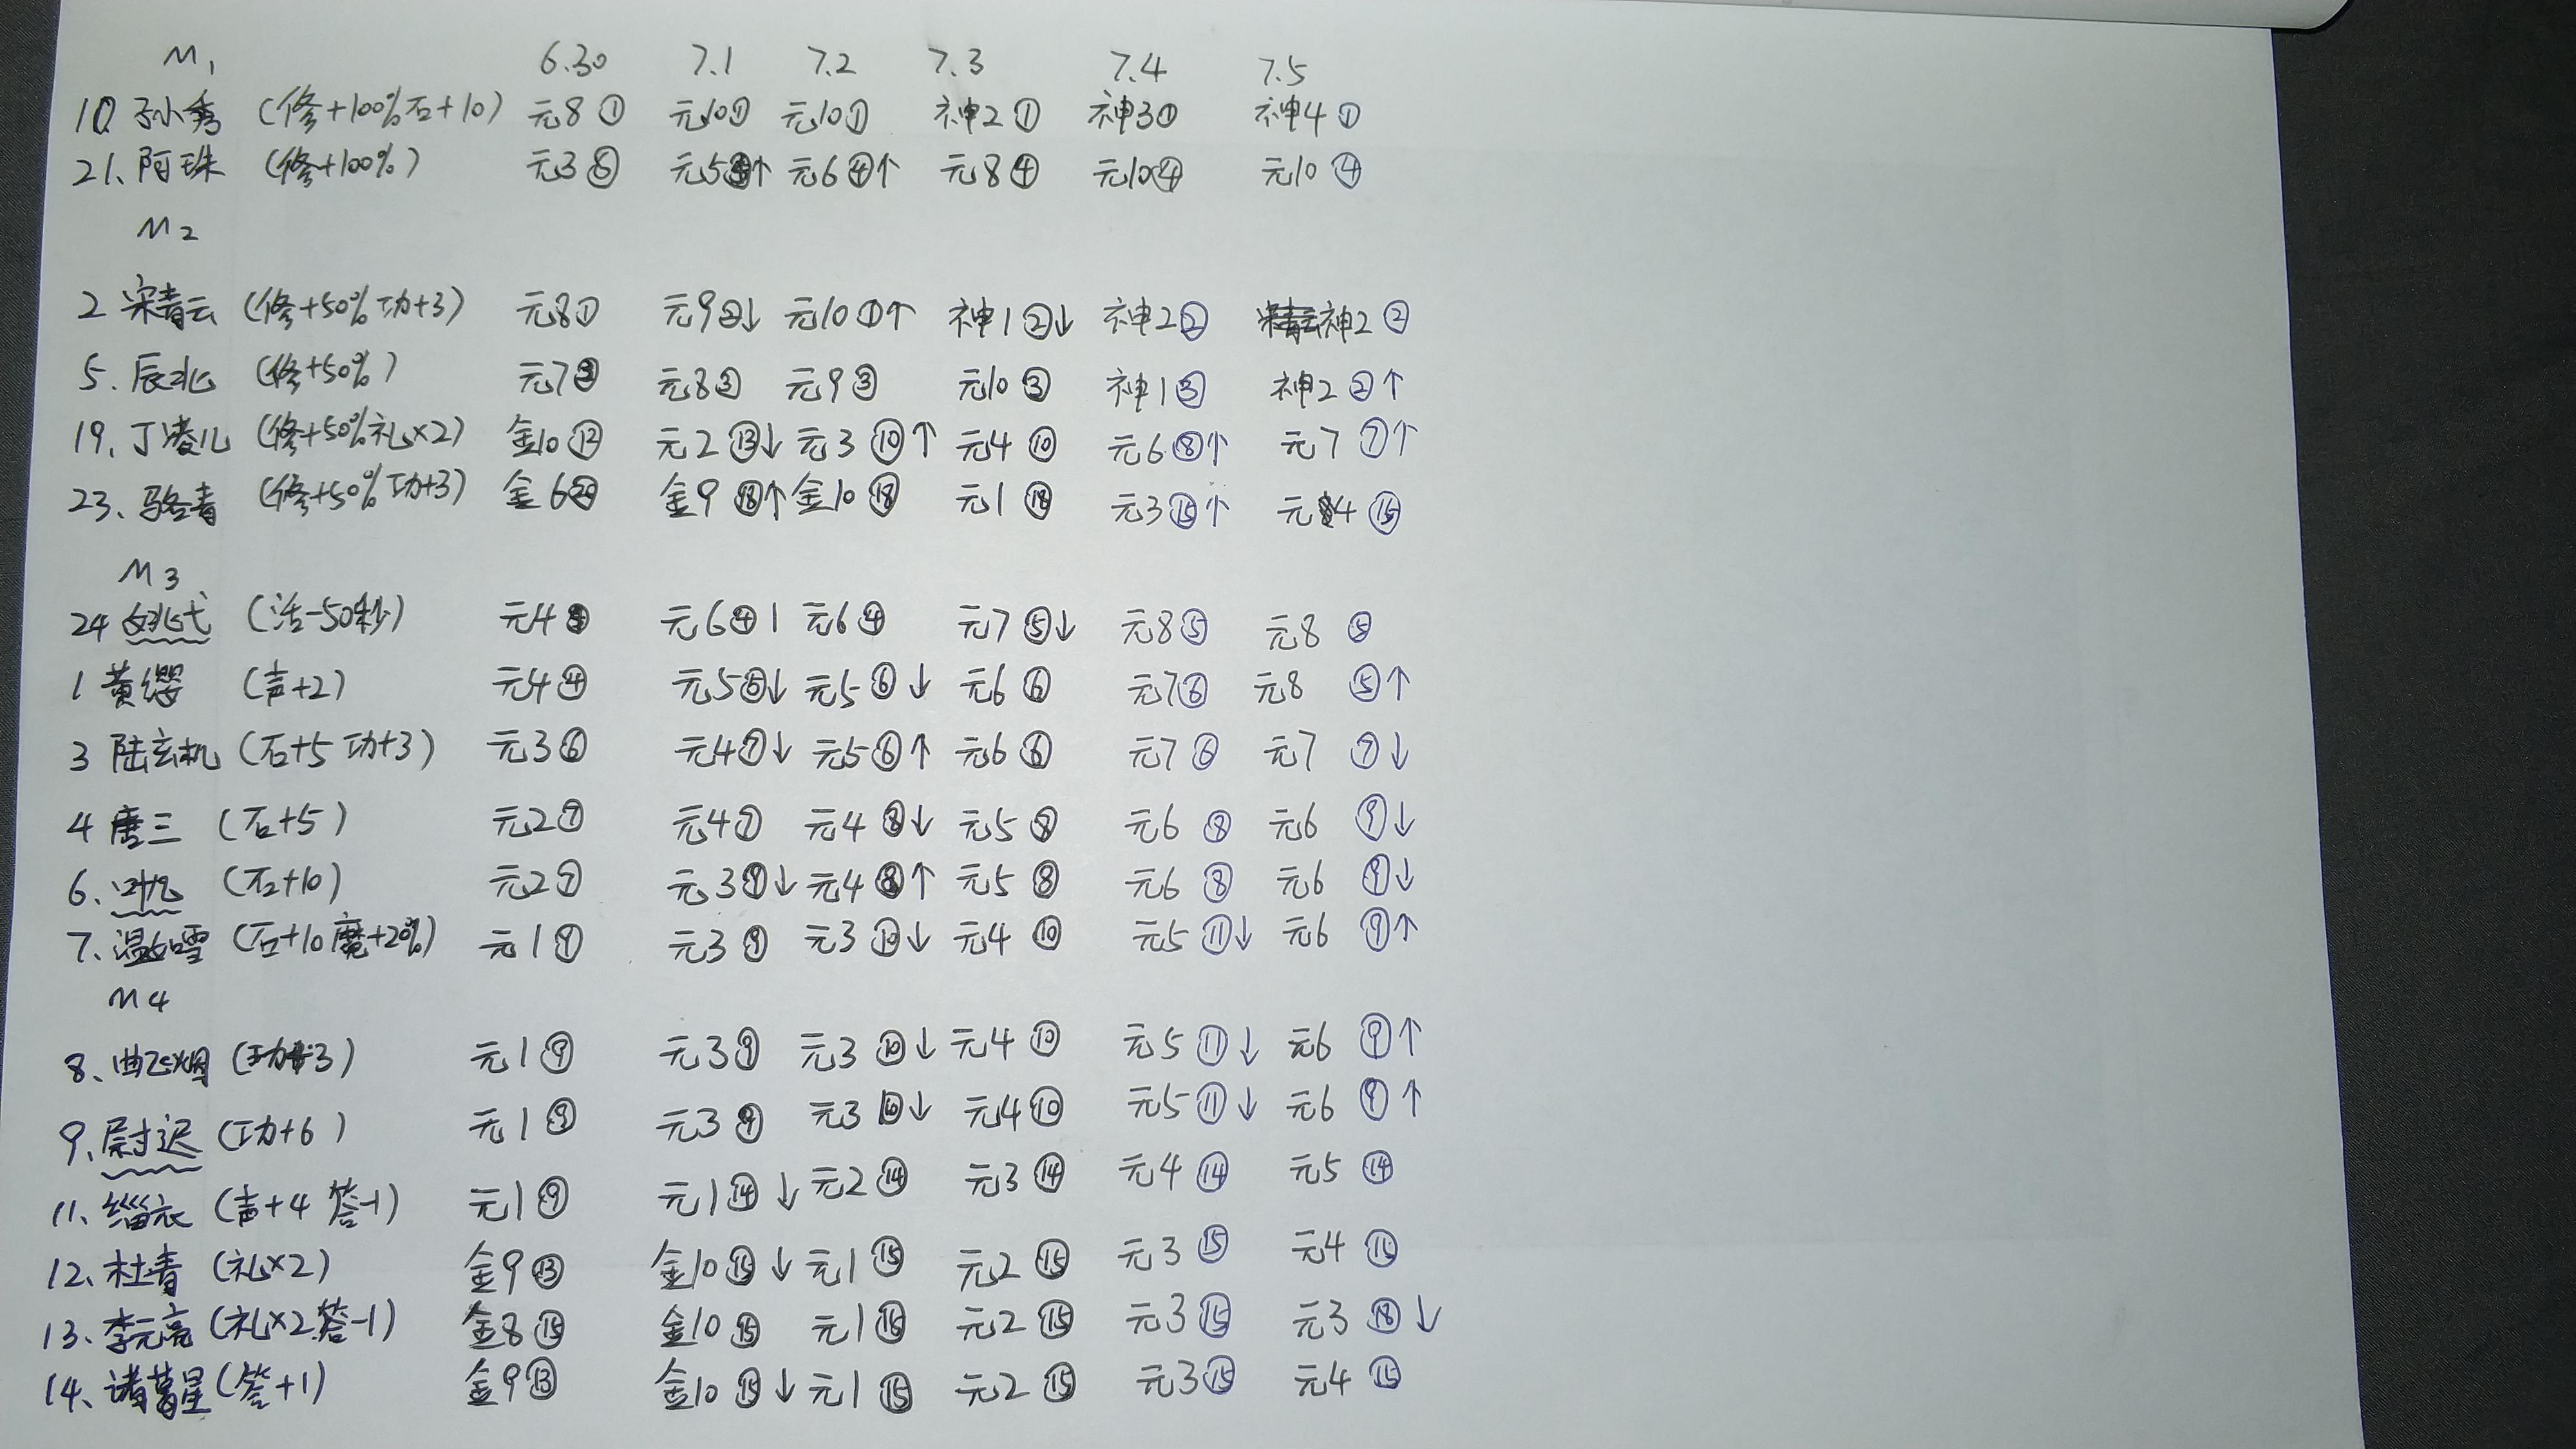 M1 6.30 7.1 7.2 7.3 7.4 7.5
10. 孙小秀 (修+100%石+10) 元8① 元10① 元10① 神2① 神3① 神4①
21、阿珠 (修+100%) 元3⑥ 元5↑ 元6④↑ 元8④ 元10④ 元10④
M2
2 宋青云 (修+50%功+3) 元8① 元9②↓ 元10①↑ 神1②↓ 神2② 神2②
5. 辰兆 (修+50%) 元7③ 元8③ 元9③ 元10③ 神1③ 神2②↑
19、丁凌儿 (修+50%礼×2) 金10⑫ 元2⑬↓ 元3⑩↑ 元4⑩ 元6⑧↑ 元7⑦↑
23、骆青 (修+50%功+3) 金6⑳ 金9⑱↑ 金10⑱ 元1⑱ 元3⑮↑ 元4⑮
M3
24 姚弋 (活-50秒) 元4 元6④ 元6④ 元7⑤↓ 元8⑤ 元8⑤
1 黄缨 (声+2) 元4④ 元5⑤↓ 元5⑥↓ 元6⑥ 元7⑥ 元8⑤↑
3 陆玄机 (石+5 功+3) 元3⑥ 元4⑦↓ 元5⑥↑ 元6⑥ 元7⑥ 元7⑦↓
4 唐三 (石+5) 元2⑦ 元4⑦ 元4⑧↓ 元5⑧ 元6⑧ 元6⑨↓
6、叶九 (石+10) 元2⑦ 元3⑨↓ 元4⑧↑ 元5⑧ 元6⑧ 元6⑨↓
7、温如雪 (石+10 魔+20%) 元1⑨ 元3⑨ 元3⑩↓ 元4⑩ 元5⑪↓ 元6⑨↑
M4
8、曲飞烟 (功+3) 元1⑨ 元3⑨ 元3⑩↓ 元4⑩ 元5⑪↓ 元6⑨↑
9、尉迟 (功+6) 元1⑨ 元3⑨ 元3⑩↓ 元4⑩ 元5⑪↓ 元6⑨↑
11、缁衣 (声+4 答-1) 元1⑨ 元1⑭↓ 元2⑭ 元3⑭ 元4⑭ 元5⑭
12、杜青 (礼×2) 金9⑬ 金10⑮↓ 元1⑮ 元2⑮ 元3⑮ 元4⑮
13、李元亮 (礼×2.答-1) 金8⑮ 金10⑮ 元1⑮ 元2⑮ 元3⑮ 元3⑱↓
14、诸葛星 (答+1) 金9⑬ 金10⑮↓ 元1⑮ 元2⑮ 元3⑮ 元4⑮